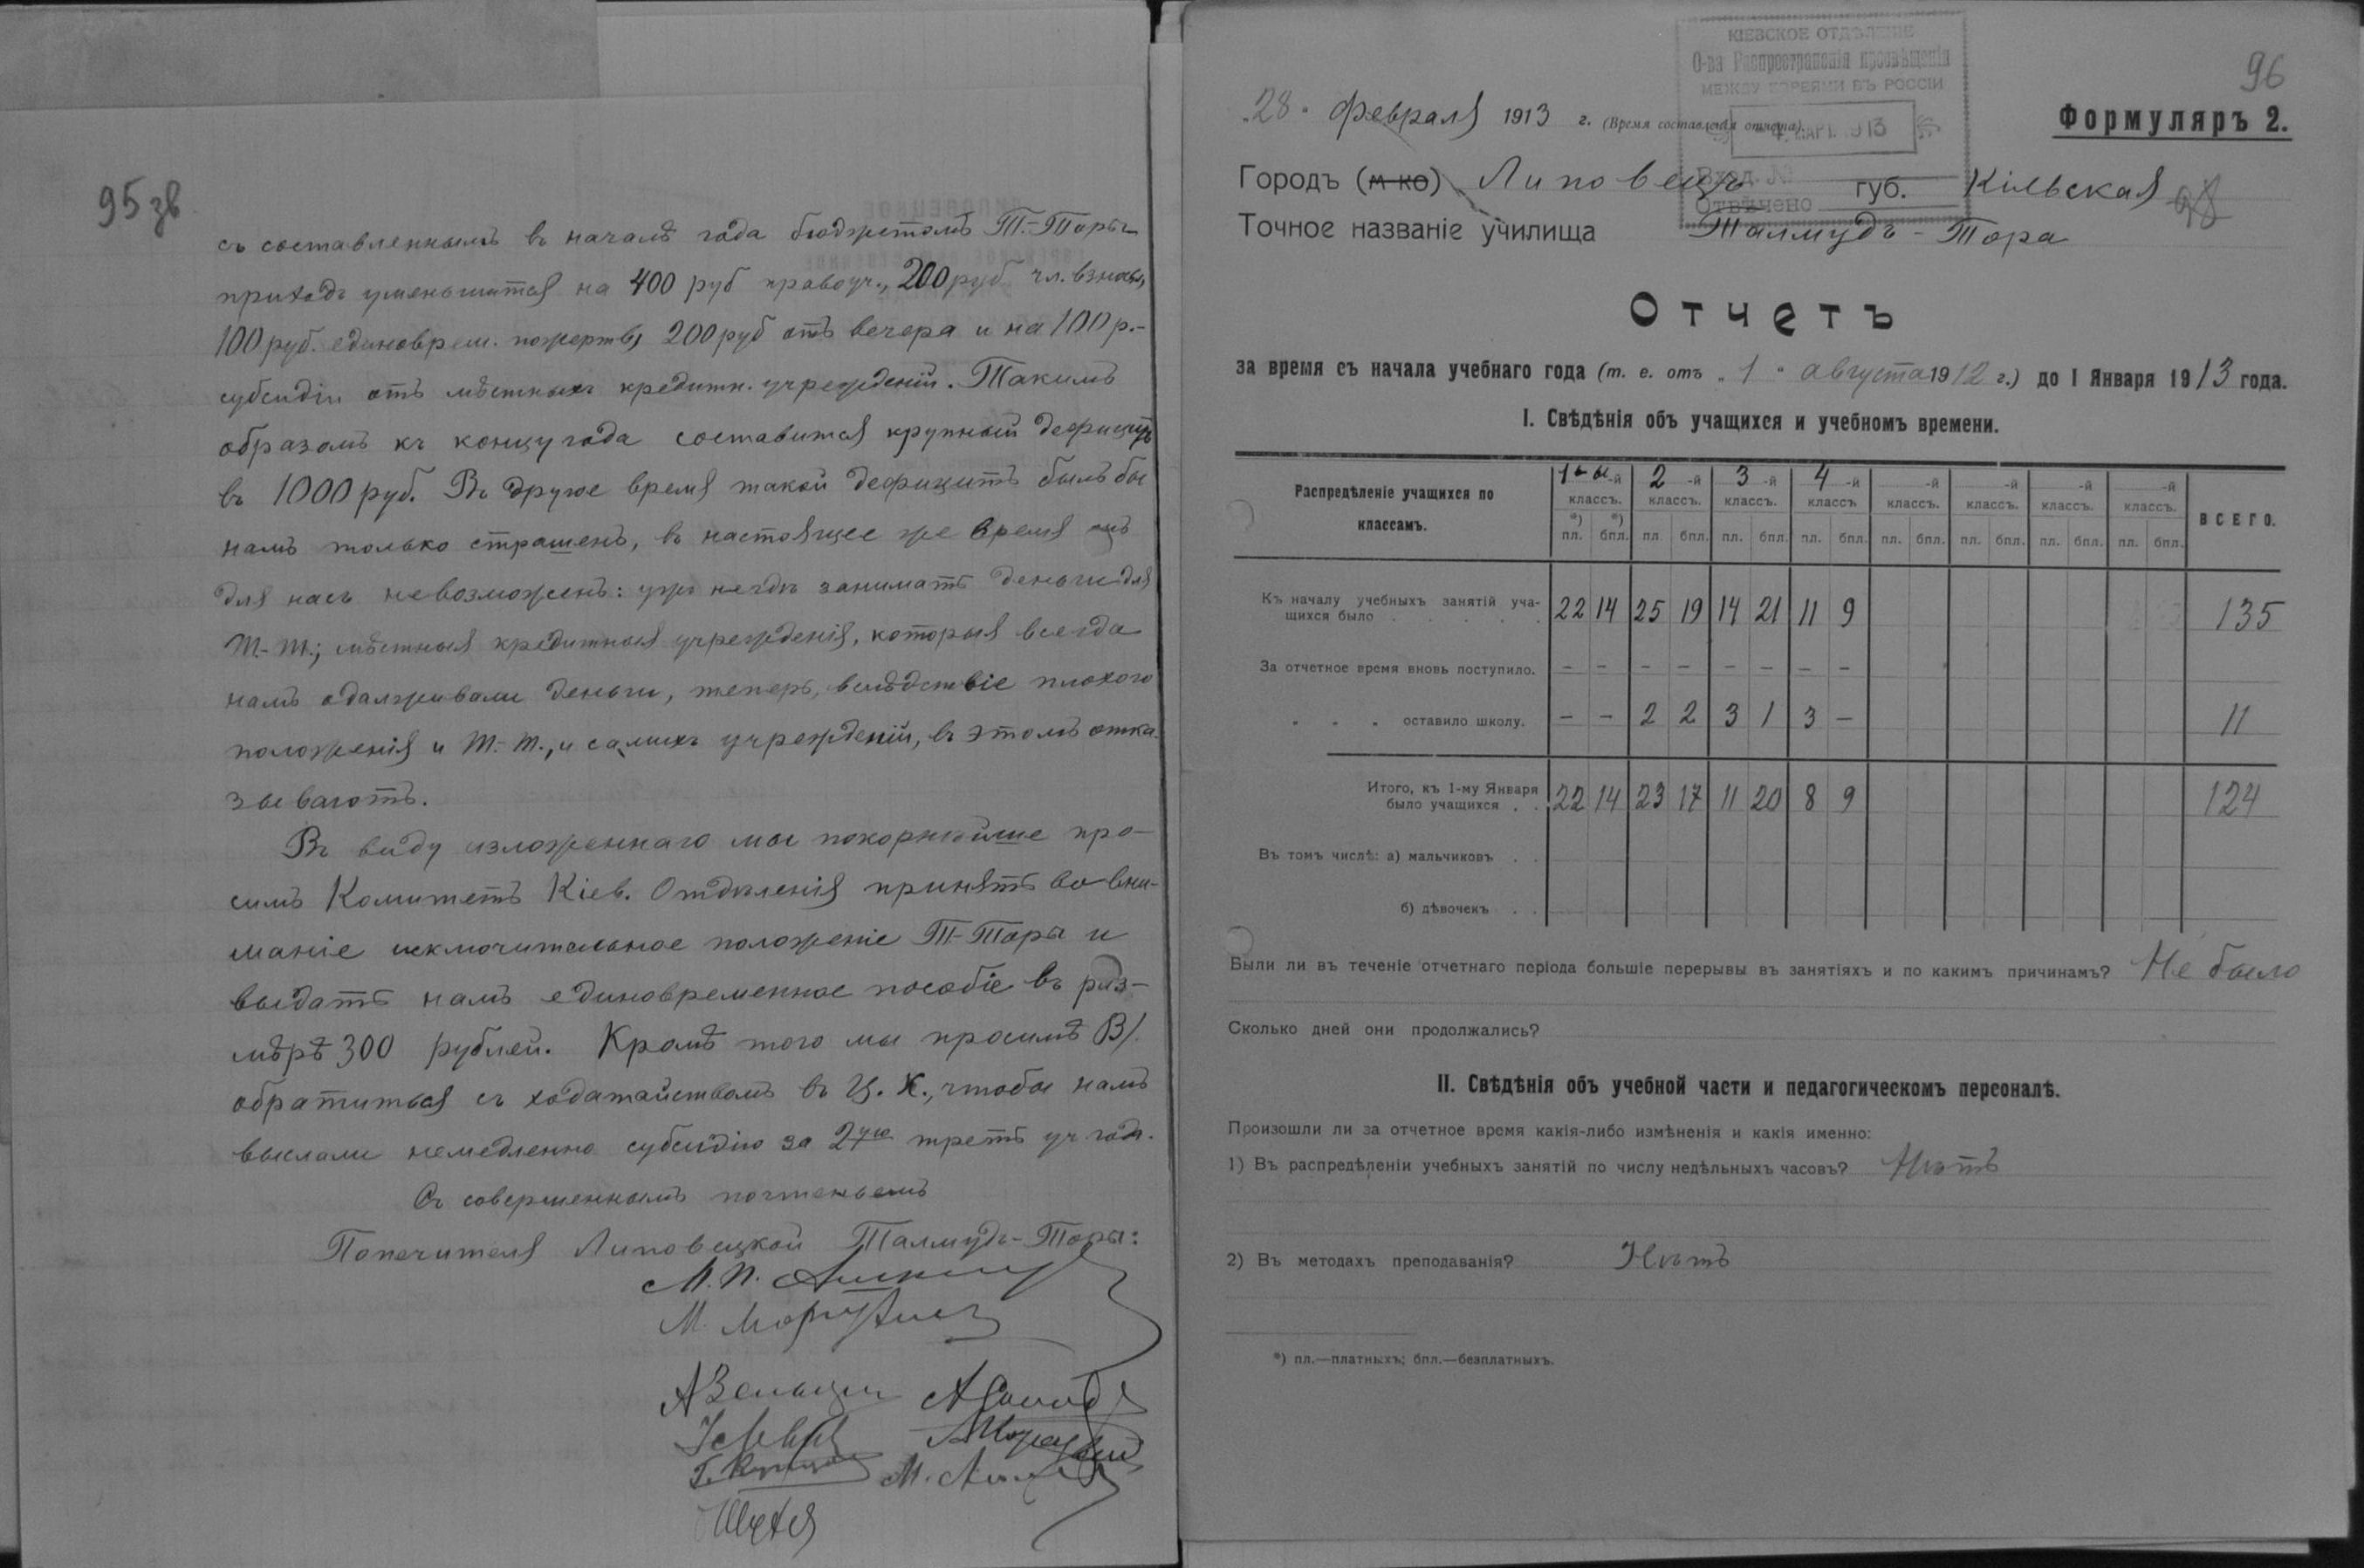 95 зв
съ составленнымъ въ началѣ года бюджетомъ Т.-Торы
приходъ уменьшится на 400 руб правоуч., 200 руб чл. взносы,
100 руб. единоврем. пожертв, 200 руб отъ вечера и на 100 р.-
субсидіи отъ мѣстныхъ кредитн. учрежденій. Такимъ
образомъ къ концу года составится крупный дефицитъ
въ 1000 руб. Въ другое время такой дефицитъ былъ бы
намъ только страшенъ, въ настоящее же время онъ
для насъ невозможенъ: ужъ негдѣ занимать деньги для
Т.-Т.; мѣстныя кредитныя учрежденія, которыя всегда
намъ одалживали деньги, теперь, вслѣдствіе плохого
положенія и Т.-Т., и самихъ учрежденій, въ этомъ отка-
зываютъ.
Въ виду изложеннаго мы покорнѣйше про-
симъ Комитетъ Кіев. Отдѣленія принять во вни-
маніе исключительное положеніе Т-Торы и
выдать намъ единовременное пособіе въ раз-
мѣрѣ 300 рублей. Кромѣ того мы просимъ В/.
обратиться съ ходатайствомъ въ Ц. К., чтобы намъ
выслали немедленно субсидію за 2ую треть уч года.
Съ совершеннымъ почтеньемъ
Попечителя Липовецкой Талмудъ-Торы:
96
КІЕВСКОЕ ОТДѢЛЕНІЕ
О-ва Распространенія просвѣщенія
МЕЖДУ ЕВРЕЯМИ ВЪ РОССІИ
4 МАРТ. 1913
Вход. №
Отвѣчено
Формуляръ 2.
„28“ Февраля 1913 г. (Время составленія отчета).
Городъ (м-ко) Липовецъ губ. Кіевская
98
Точное названіе училища Талмудъ-Тора
Отчетъ
за время съ начала учебнаго года (т. е. отъ „1“ августа 1912 г.) до 1 Января 1913 года.
I. Свѣдѣнія объ учащихся и учебномъ времени.
Распредѣленіе учащихся по классамъ. 1-ый классъ. 2-й классъ. 3-й классъ. 4-й классъ -й классъ. -й классъ. -й классъ. -й классъ. ВСЕГО.
*) пл. *) бпл. пл. бпл. пл. бпл. пл. бпл. пл. бпл. пл. бпл. пл. бпл. пл. бпл.
Къ началу учебныхъ занятій уча-
щихся было . . . . . 22 14 25 19 14 21 11 9 135
За отчетное время вновь поступило. – – – – – – – –
" " " оставило школу. – – 2 2 3 1 3 – 11
Итого, къ 1-му Января
было учащихся . . 22 14 23 17 11 20 8 9 124
Въ томъ числѣ: а) мальчиковъ . .
б) дѣвочекъ . .
Были ли въ теченіе отчетнаго періода большіе перерывы въ занятіяхъ и по какимъ причинамъ? Не было
Сколько дней они продолжались?
II. Свѣдѣнія объ учебной части и педагогическомъ персоналѣ.
Произошли ли за отчетное время какія-либо измѣненія и какія именно:
1) Въ распредѣленіи учебныхъ занятій по числу недѣльныхъ часовъ? Нѣтъ
2) Въ методахъ преподаванія? Нѣтъ
*) пл.—платныхъ; бпл.—безплатныхъ.